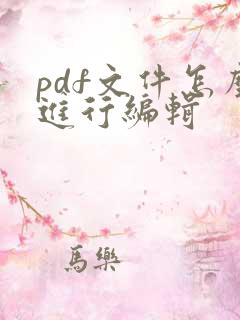 pdf文件怎麼
進行編輯
馬樂